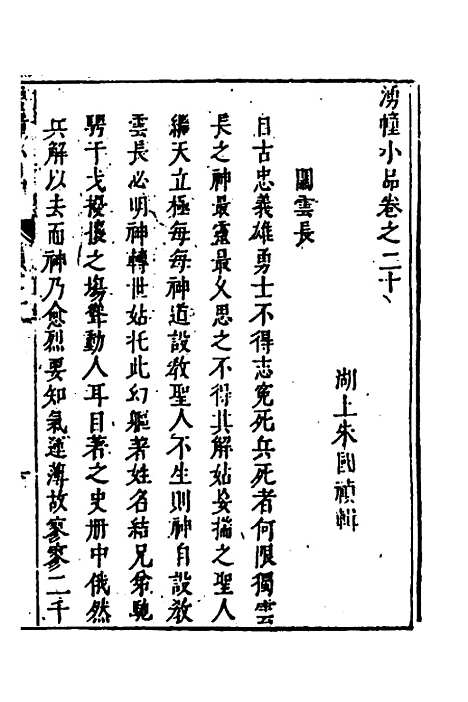 湧幢小品卷之二十
湖上朱國禎輯
關雲長
自古忠義雄勇士不得志冤死兵死者何限獨雲
長之神最靈最久思之不得其解姑妄揣之聖人
繼天立極每每神道設教聖人不生則神自設教
雲長必明神轉世姑托此幻軀著姓名結兄弟馳
騁干戈擾攘之場聳動人耳目著之史册中俄然
兵解以去而神乃愈烈要知氣運薄故寥寥二千